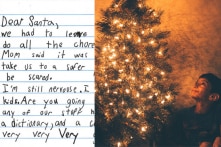 Dear Santa,
we had to leave
do all the chor
Mom said it was
take us to a safer
be scared.
I'm still nervouse. I
kids. Are you going
any of our stuff h
a dictionary, and a c
very very very